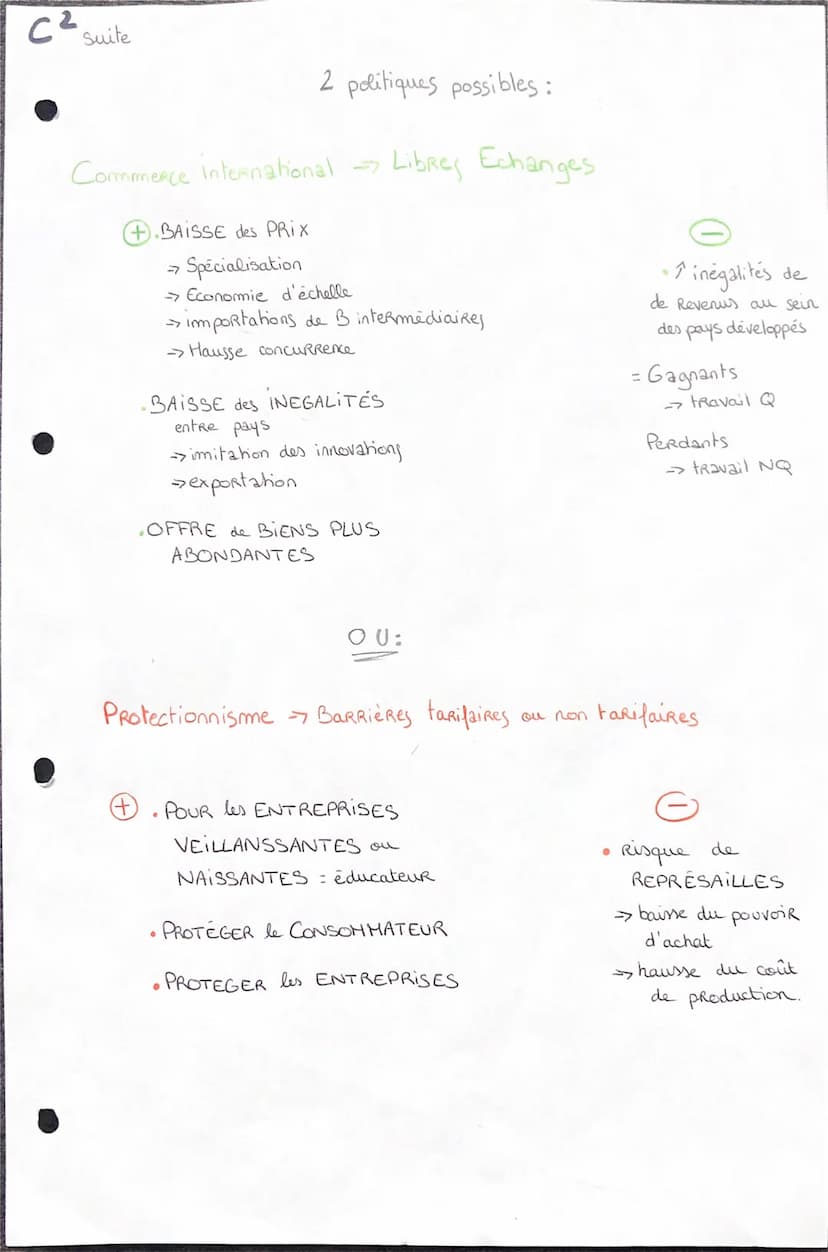 C² suite
2 politiques possibles :
Commerce international → Libres Echanges
+ . BAISSE des PRIX
→ Spécialisation
→ Economie d'échelle
→ importations de B intermédiaires
→ Hausse concurrence
. BAISSE des INEGALITÉS
entre pays
→ imitation des innovations
→ exportation
. OFFRE de BIENS PLUS
ABONDANTES
−
. ↑ inégalités de
de Revenus au sein
des pays développés
= Gagnants
→ travail Q
Perdants
→ travail NQ
OU :
Protectionnisme → Barrières tarifaires ou non tarifaires
+ . POUR les ENTREPRISES
VEILLANSSANTES ou
NAISSANTES : éducateur
. PROTÉGER le CONSOMMATEUR
. PROTEGER les ENTREPRISES
−
. Risque de
REPRÉSAILLES
→ baisse du pouvoir
d'achat
→ hausse du coût
de production.